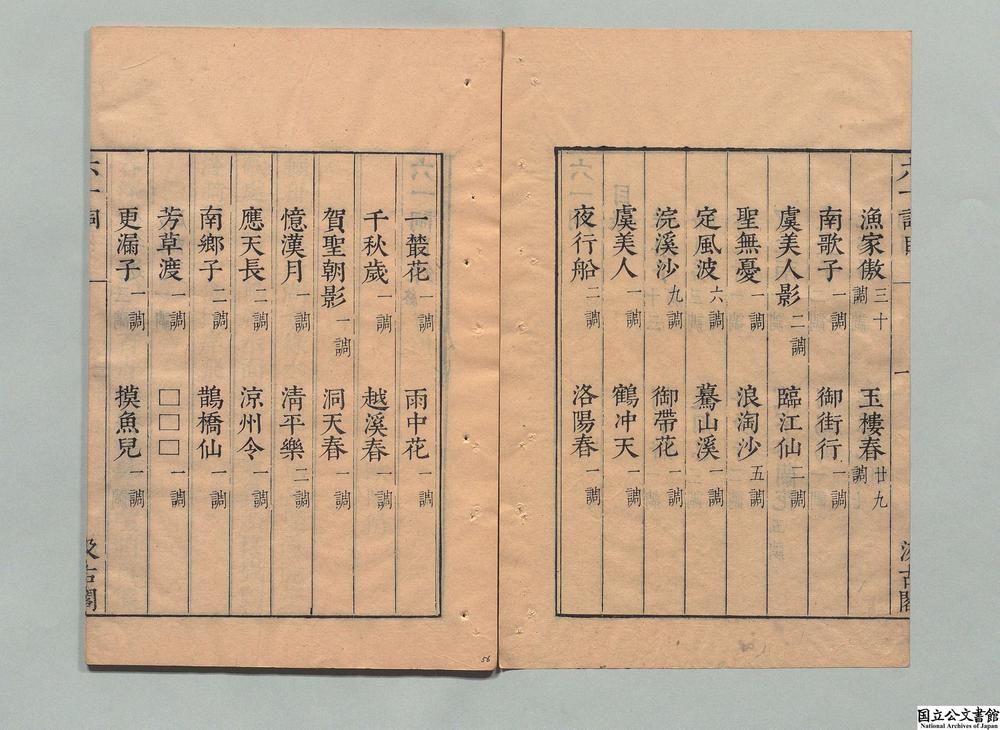 漁家傲 三十調 玉樓春 廿九調
南歌子 一調 御街行 一調
虞美人影 二調 臨江仙 二調
聖無憂 一調 浪淘沙 五調
定風波 六調 驀山溪 一調
浣溪沙 九調 御帶花 一調
虞美人 一調 鶴冲天 一調
夜行船 二調 洛陽春 一調
一叢花 一調 雨中花 一調
千秋歲 一調 越溪春 一調
賀聖朝影 一調 洞天春 一調
憶漢月 一調 清平樂 二調
應天長 二調 涼州令 一調
南鄉子 二調 鵲橋仙 一調
芳草渡 一調 □□□ 一調
更漏子 一調 摸魚兒 一調
六一詞 一 汲古閣
56
国立公文書館
National Archives of Japan